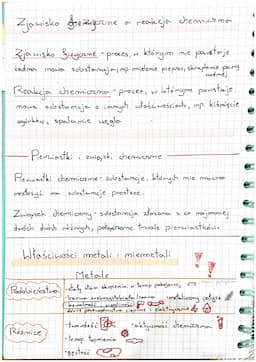 Zjawisko fizyczne a reakcja chemiczna
Zjawisko fizyczne - proces, w którym nie powstaje
żadna nowa substancja, np. mielenie pieprzu, skraplanie pary
wodnej
Reakcja chemiczna - proces, w którym powstaje
nowa substancja o innych właściwościach, np. kiśnięcie
ogórków, spalanie węgla
Pierwiastki i związki chemiczne
Pierwiastki chemiczne - substancje, których nie można
rozłożyć na substancje prostsze.
Związek chemiczny - substancja złożona z co najmniej
dwóch różnych, połączone trwale pierwiastków.
Właściwości metali i niemetali
Metale
Podobieństwa
- stały stan skupienia w temp. pokojowej
- metaliczny połysk
Różnice
- twardość
- aktywność chemiczna
- temp. topnienia
- gęstość